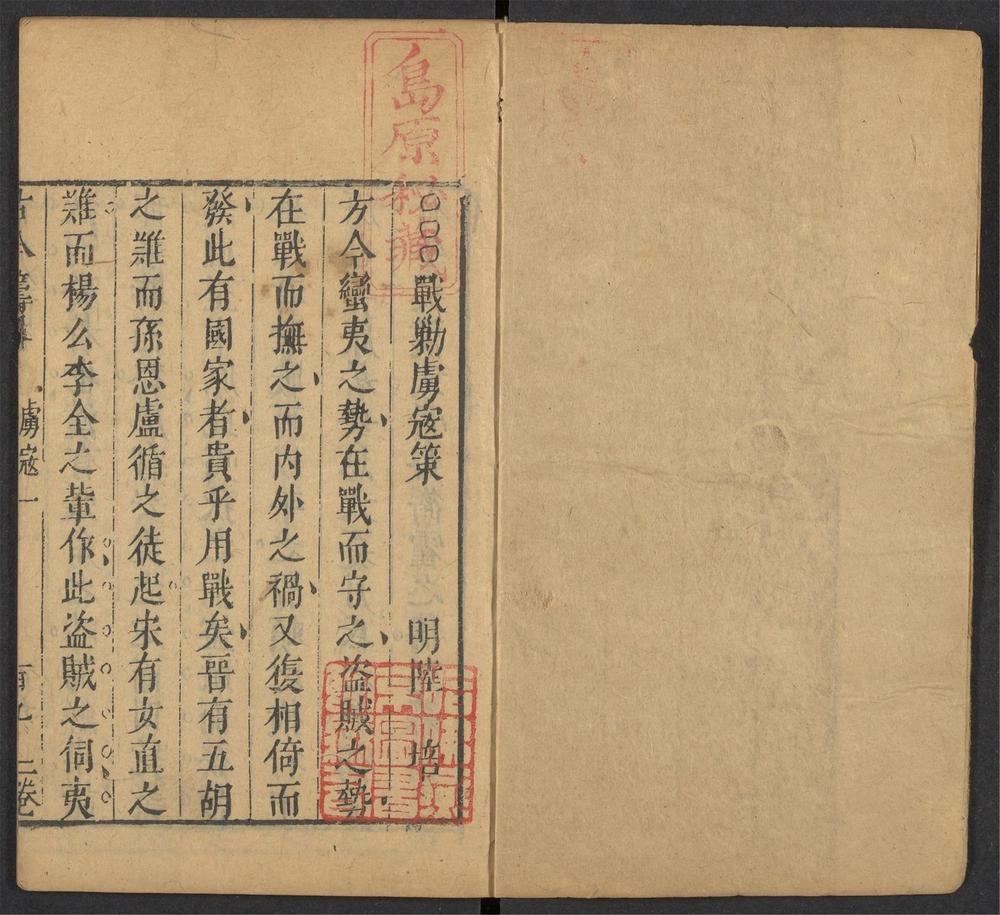 島原秘藏
○○○戰勦虜寇策 明陸 培
方今蠻夷之勢在戰而守之盜賊之勢
在戰而撫之而內外之禍又復相倚而
發此有國家者貴乎用戰矣晉有五胡
之難而孫恩盧循之徒起宋有女直之
難而楊么李全之輩作此盜賊之伺夷
古今 虜寇一 二卷